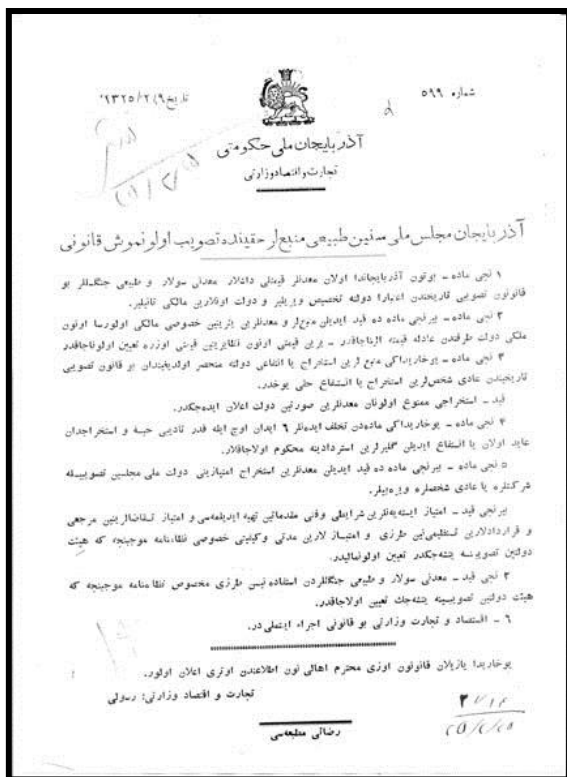 شماره ۵۹۹
تاریخ ۲۹/۲/۱۳۲۵
آذربایجان ملی حکومتی
تجارت و اقتصاد وزارتی
آذربایجان مجلس ملی سنین طبیعی منبع‌لر حقینده تصویب اولونموش قانونی
۱ نجی ماده – بوتون آذربایجاندا اولان معدنلر قیمتلی داشلار معدنی سولار و طبیعی جنگللر بو
قانونون تصویبی تاریخندن اعتبارا دولته تخصیص ویریلیر و دولت اونلارین مالکی تانیلیر.
۲ نجی ماده – بیرنجی ماده ده قید ایدیلن منبع‌لر و معدنلرین یرینین خصوصی مالکی اولورسا اونون
ملکی دولت طرفندن عادله قیمته آلیناجاقدر – یرین قیمتی اونون نظایرینین قیمتی اوزره تعیین اولوناجاقدر
۳ نجی ماده – یوخاریداکی منبع لرین استخراج یا انتفاعی دولته منحصر اولدیغیندان بو قانون تصویبی
تاریخیندن عادی شخص‌لرین استخراج یا استفاع حقی یوخدر.
قید – استخراجی ممنوع اولونان معدنلرین صورتین دولت اعلان ایده‌جکدر.
۴ نجی ماده – یوخاریداکی ماده‌دن تخلف ایده‌نلر ۶ ایدان اوچ ایله قدر تادیبی حبسه و استخراجدان
عاید اولان یا استفاع ایدیلن گلیرلرین استردادینه محکوم اولاجاقلار.
۵ نجی ماده – بیرنجی ماده ده قید ایدیلن معدنلرین استخراج امتیازینی دولت ملی مجلسین تصویبیله
شرکتلره یا عادی شخصلره ویره‌بیلر.
بیرنجی قید – امتیاز ایسته‌ینلرین شرایطلی وفنی مقدماتین تهیه ایدیلمه‌سی و امتیاز تقاضالرینین مرجعی
و قراردادلارین تنظیمی‌نین طرزی و امتیاز لارین مدتی وکیفیتی خصوصی نظامنامه موجبنجه که هیئت
دولتین تصویبنه یتشه‌جکدر تعیین اولونمالیدر.
۲ نجی قید – معدنی سولار و طبیعی جنگللردن استفاده نیسن طرزی مخصوص نظامنامه موجبنجه که
هیئت دولتین تصویبینه یتشه‌جك تعیین اولاجاقدر.
۶ – اقتصاد و تجارت وزارتی بو قانونی اجراء ایتملی‌در.
یوخاریدا یازیلان قانونون اوزی محترم اهالی نون اطلاعندن اوتری اعلان اولور.
تجارت و اقتصاد وزارتی: رسولی
رضائی مطبعه‌سی